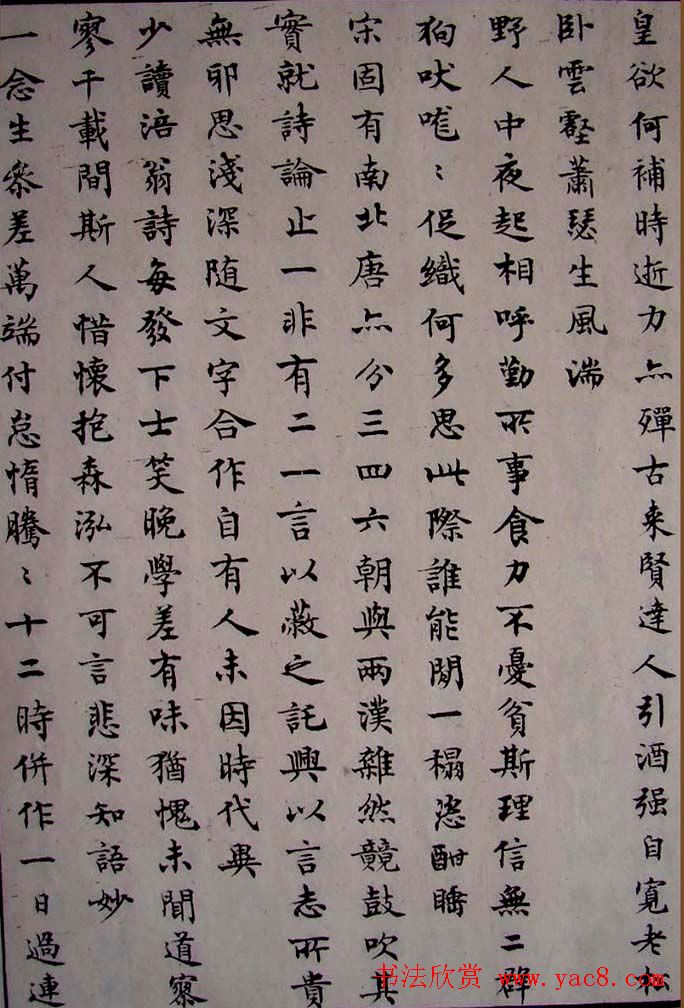 皇欲何補時逝力亦殫古來賢達人引酒强自寬老松
卧雲壑蕭瑟生風湍
野人中夜起相呼勤所事食力不憂貧斯理信無二群
狗吠促織何多思此際誰能閒一榻恣酣睡
宋固有南北唐亦分三四六朝與兩漢雜然競鼓吹其
實就詩論止一非有二一言以蔽之託興以言志所貴
無邪思淺深随文字合作自有人未因時代異
少讀涪翁詩每發下士笑晚學差有味猶愧未聞道寥
寥千載間斯人惜懷抱森泓不可言悲深知語妙
一念生參差萬端付怠惰騰〻十二時併作一日過連
书法欣赏 www.yac8.com